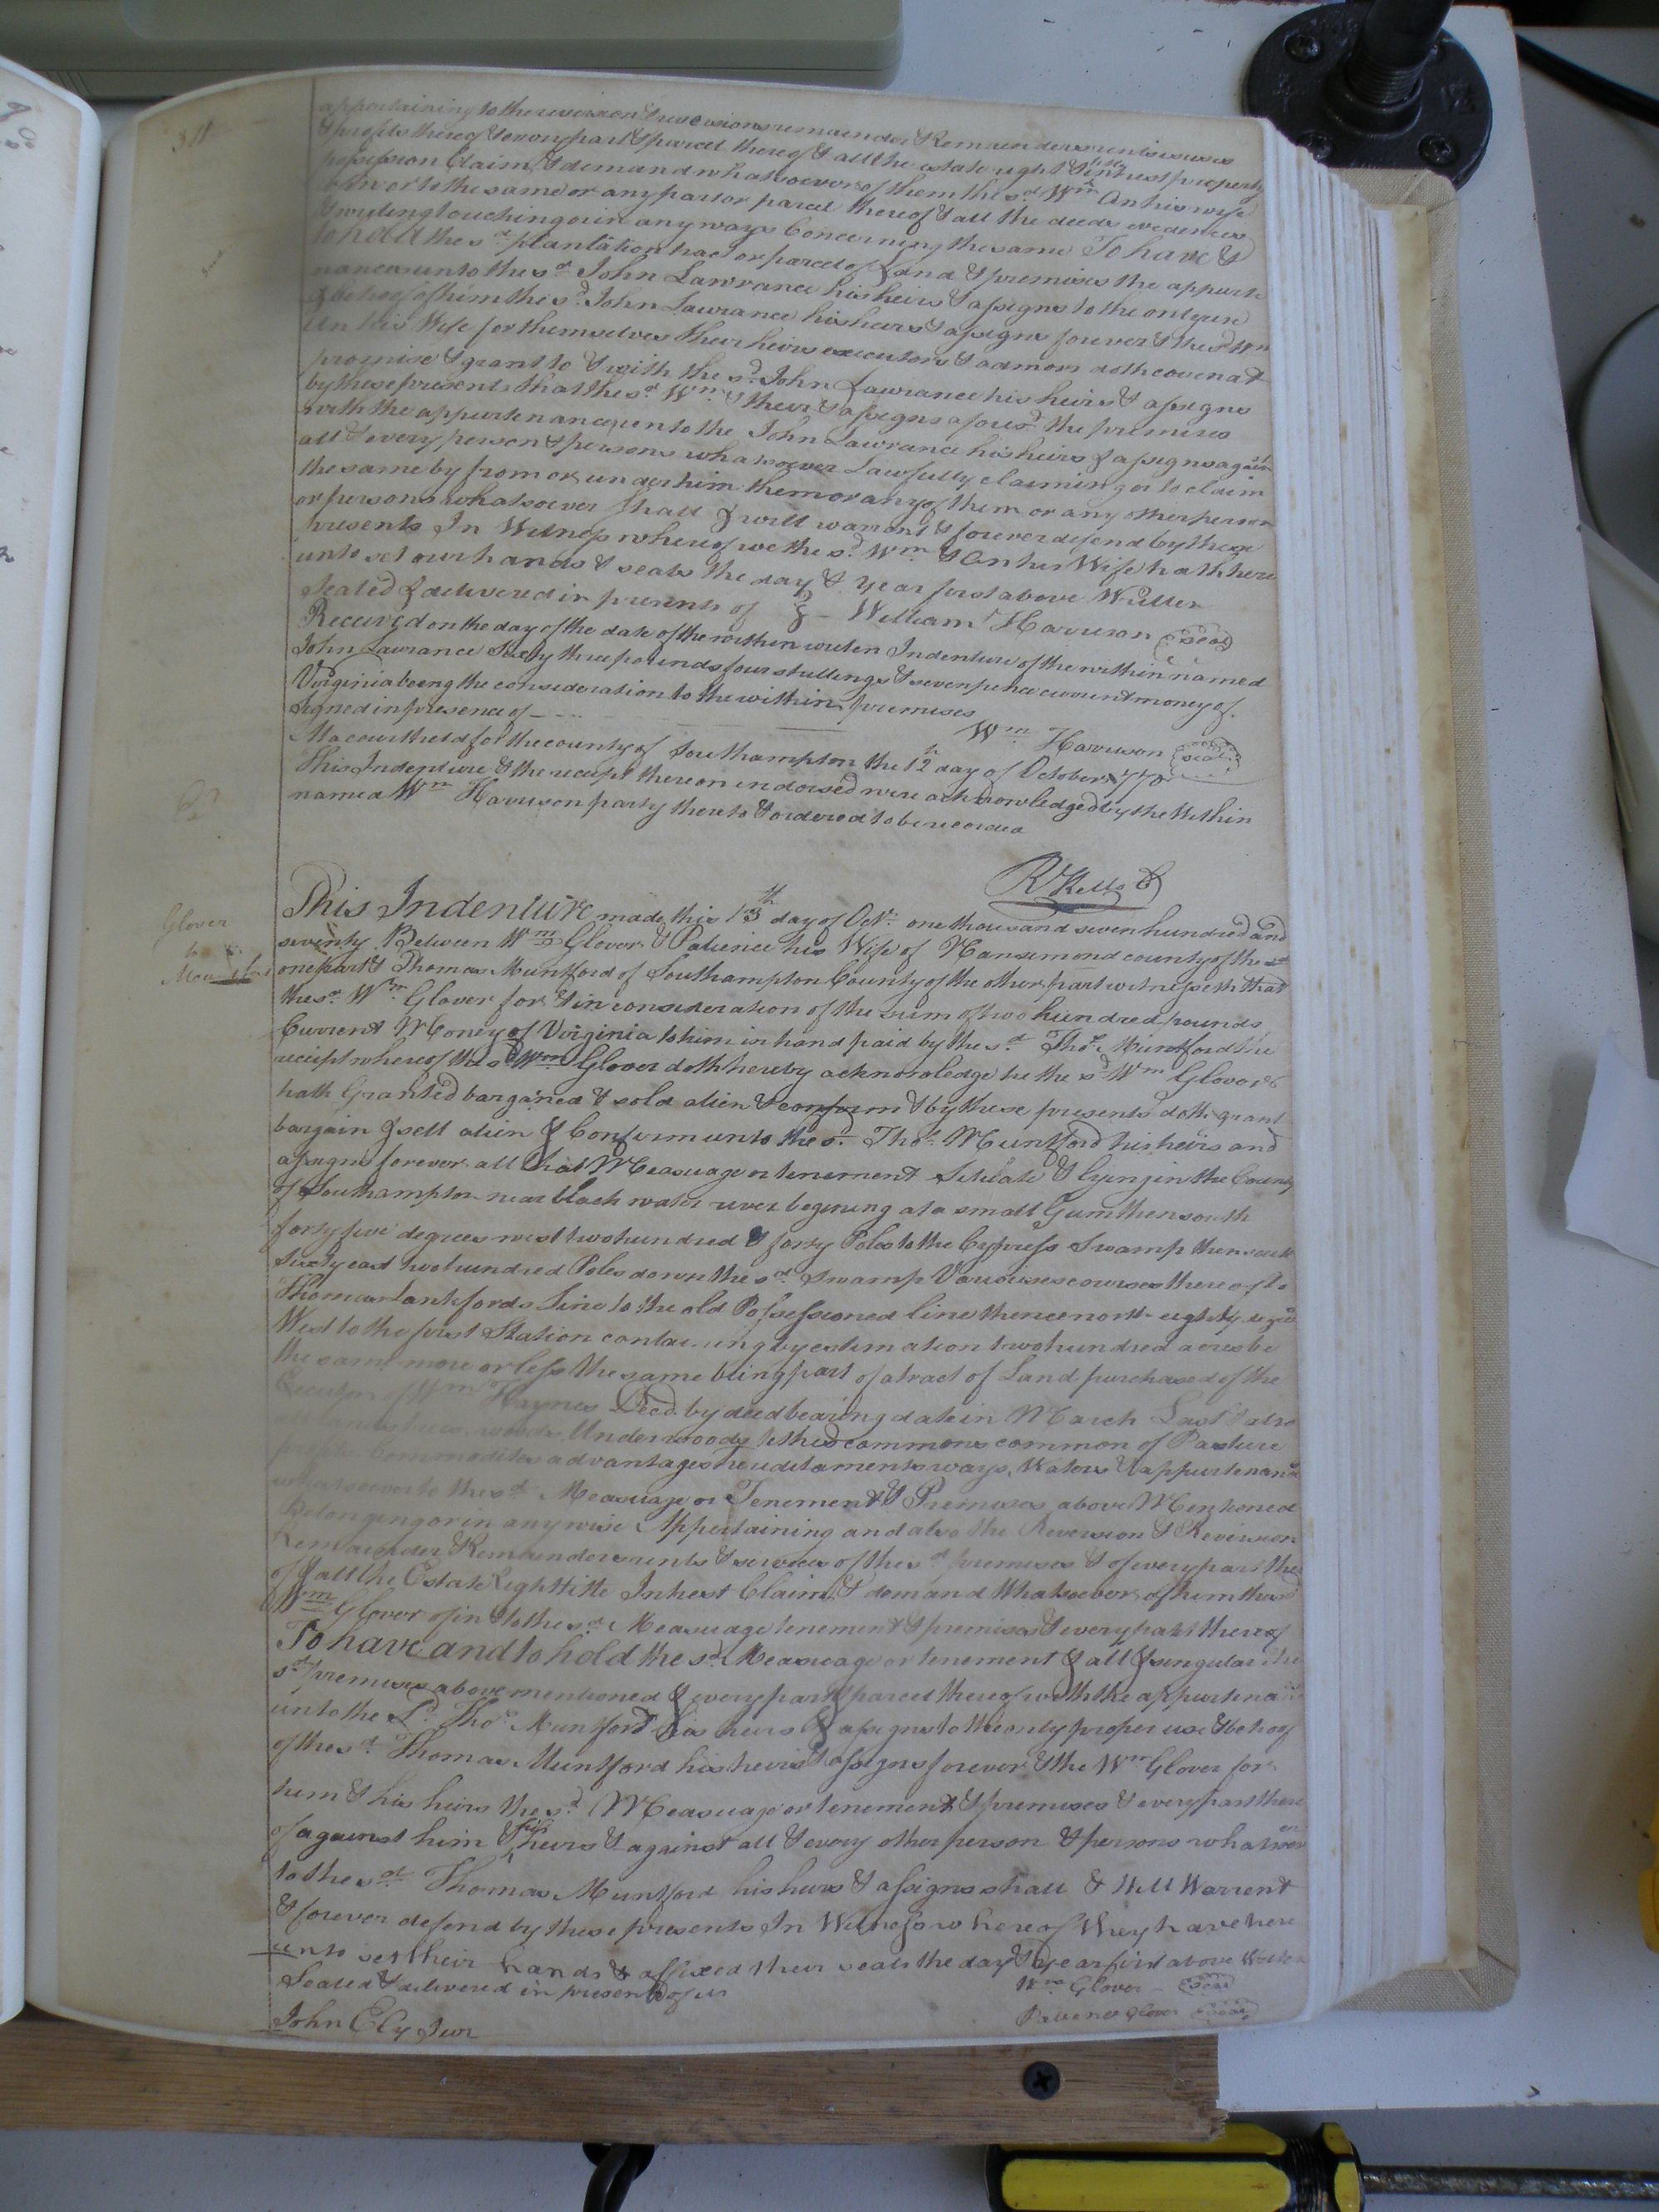 311
appertaining to the reversion & reversions remainder & Remainders rents issues
& profits thereof & every part & parcel thereof & all the estate right title intrust property
possession Claim & demand whatsoever of them the sd Wm An his wife
of in or to the same or any part or parcel thereof & all the deeds evedences
& writing touching or in any ways Concerning the same To have &
to hold the sd plantation tract or parcel of Land & premises the appurte
nances unto the sd John Lawrance his heirs & assigns to the only use
& behoof of him the sd John Lawrance his heirs & assigns forever & the sd Wm
An his Wife for themselves their heirs executors & admors doth covenat
promise & grant to & with the sd John Lawrance his heirs & assigns
by these presents that the sd Wm & their & assigns aforesd the premises
with the appurtenances unto the John Lawrance his heirs & assigns against
all & every person & persons whatsoever Lawfully claiming or to claim
the same by from or under him them or any of them or any other person
or persons whatsoever shall & will warrant & forever defend by these
presents In Witness whereof we the sd Wm & An his Wife hath here
unto set our hands & seals the day & year first above Written
Sealed & delivered in presents of William Harrison seal
Received on the day of the date of the within writen Indenture of the within named
John Lawrance Sixty three pounds four shillings & seven pence current money of
Virginia being the consideration to the within premises
signed in presence of Wm Harrison seal
At a court held for the county of Southampton the 12th day of October 1770
This Indenture & the receipt thereon indorsed were acknowledged by the Within
named Wm Harrison party thereto & ordered to be recorded
R Kello C
Glover
to
This Indenture made this 13th day of Octr one thousand seven hundred and
seventy Between Wm Glover & Patience his Wife of Nansemond county of the
one part & Thomas Muntford of Southampton County of the other part witnesseth that
the sd Wm Glover for & in consideration of the sum of two hundred pounds
Current Money of Virginia to him in hand paid by the sd Thos Muntford the
receipt whereof the sd Wm Glover doth hereby acknowledge he the sd Wm Glover
hath Granted barganed & sold alien & confirm & by these presents doth grant
bargain & sell alien & Confirm unto the sd Thos Muntford his heirs and
assigns forever all that Measuage or tenement Situate & lying in the County
of Southampton near black water river begining at a small Gum then south
forty five degrees west two hundred & forty Poles to the Cypress Swamp then south
sixty east two hundred Poles down the sd Swamp Variouses courses thereof to
Thomas Lankfords line to the old Possessioned line thence north eighty degrs
West to the first Station containing by estimation two hundred acres be
the same more or less the same being part of a tract of Land purchased of the
Wm Haynes Decd by deed bearing date in March Last & also
woods Underwoods tithes commons common of Pasture
Commodites advantages heriditaments ways, Waters & appurtenances
whatsoever to the sd Measuage or Tenement & Premises above Mentioned
Belonging or in any wise Appertaining and also the Reversion & Reversions
Remainder & Remainders rents & services of the sd premises & of every part there
of & all the Estate Right title Intrest Claim & demand Whatsoever of him the sd
Wm Glover of in & to the sd Measuage tenement & premises & every part thereof
To have and to hold the sd Measuage or tenement & all & singular the
sd premises above mentioned & every part & parcel thereof with the appurtenances
unto the Sd Thos Muntford his heirs & assigns to the only proper use & behoof
of the sd Thomas Muntford his heirs & assigns forever & the Wm Glover for
him & his heirs the sd Measuage or tenement & premises & every part there
of against him & his heirs & against all & every other person & persons whatsoever
to the sd Thomas Muntford his heirs & assigns shall & Will Warrent
& forever defend by these presents In Witness whereof they have here
unto set their hands & affixed their seals the day & year first above Written
Sealed & delivered in presents of us Wm Glover seal
John Ely Jur Patience Glover seal